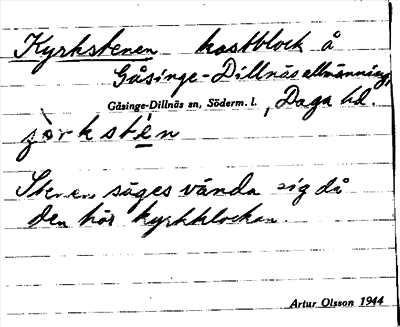 Kyrkstenen kastblock å
Gåsinge-Dillnäs allmänning,
Gåsinge-Dillnäs sn, Söderm. l. , Daga hd.
stèn
Stenen säges vända sig då
den hör kyrkklockan.
Artur Olsson 1944